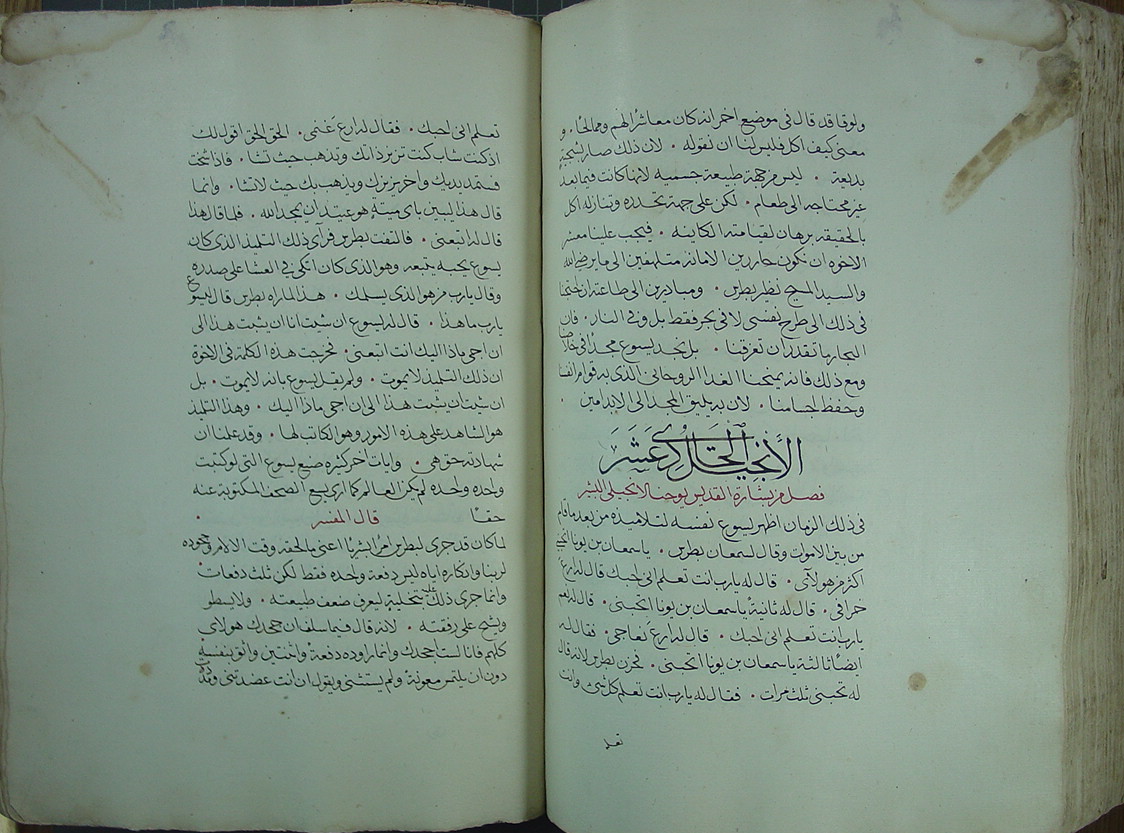 ولوقا قد قال في موضع اخر انه كان معاشرًا لهم وممالحًا. و
معنى كيف اكل فليس لنا ان نقوله. لان ذلك صار بسجية
بديعة. ليس من جهة طبيعة جسمية لانها كانت فيما بعد
غير محتاجه الى طعام. لكن على جهة تحدده وتنازله اكل
بالحقيقه برهان لقيامته الكاينه. فيجب علينا معشر
الاخوه ان نكون حارين الامانه متلهفين الى ما يرضي الله
والسيد المسيح نظير بطرس. ومبادرين الى طاعته ان احتجنا
في ذلك الى طرح نفسي لا في بحر فقط بل وفي النار. فان
البحار ما تقدر ان تغرقنا. بل نجد يسوع مجدًا في خلاصنا
ومع ذلك فانه يمنحنا الغدا الروحاني الذي به قوام انفسنا
وحفظ اجسامنا. لان به يليق المجد الى الابد امين.
الأنجيل الحادى عَشَرَ
فصل من بشارة القديس يوحنا الانجيلي البشير
في ذلك الزمان اظهر يسوع نفسه لتلاميذه من بعد ما قام
من بين الاموات وقال لسمعان بطرس. يا سمعان بن يونا اتحبني
اكثر من هولاي. قال له يا رب انت تعلم اني احبك قال له ارع
خرافي. قال له ثانية يا سمعان بن يونا اتحبني. قال له نعم
يا رب انت تعلم اني احبك. قال له ارع نعاجي. فقال له
ايضًا ثالثة يا سمعان بن يونا اتحبني. فحزن بطرس لانه قال
له تحبني ثلث مرات. فقال له يا رب انت تعلم كل شي وانت
تعلم
تعلم اني احبك. فقال له ارع غنمي. الحق الحق اقول لك
اذ كنت شاب كنت تزنر ذاتك وتذهب حيث تشا. فاذا شخت
فستمد يديك واخر يزنرك ويذهب بك حيث لا تشا. وانما
قال هذا ليبين باى ميتة هو عتيد ان يمجد الله. فلما قال هذا
قال له اتبعنى. فالتفت بطرس فرأى ذلك التلميذ الذي كان
يسوع يحبه يتبعه وهو الذي كان اتكى في العشا على صدره
وقال يا رب من هو الذي يسلمك. هذا لما راه بطرس قال ليسوع
يا رب ما هذا. قال له يسوع ان شيت انا ان يثبت هذا الى
ان اجى ماذا اليك انت اتبعنى. فخرجت هذه الكلمة في الاخوة
ان ذلك التلميذ لا يموت. ولم يقل يسوع بانه لا يموت. بل
ان شيت ان يثبت هذا الى ان اجى ماذا اليك. وهذا التلميذ
هو الشاهد على هذه الامور وهو الكاتب لها. وقد علمنا ان
شهادته حق هي. وايات اخر كثيره صنع يسوع التى لو كتبت
واحده واحده لم يكن العالم كما ارى يسع الصحف المكتوبة عنه
حقًا قال المفسر.
لما كان قد جرى لبطرس امرًا بشريًا اعني ما لحقه وقت الالام من جحوده
لربنا وانكاره اياه ليس دفعة واحده فقط لكن ثلث دفعات
وانما جرى ذلك عليه بتخلية ليعرف ضعف طبيعته. ولا يسطو
ويشمخ على رفقته. لانه قال فيما سلف ان جحدك هولاى
كلهم فانا لست اجحدك وانما راوده دفعةً واثنتين واثق بنفسه
دون ان يلتمس معونة ولم يستثنى ويقول ان انت عضدتنى